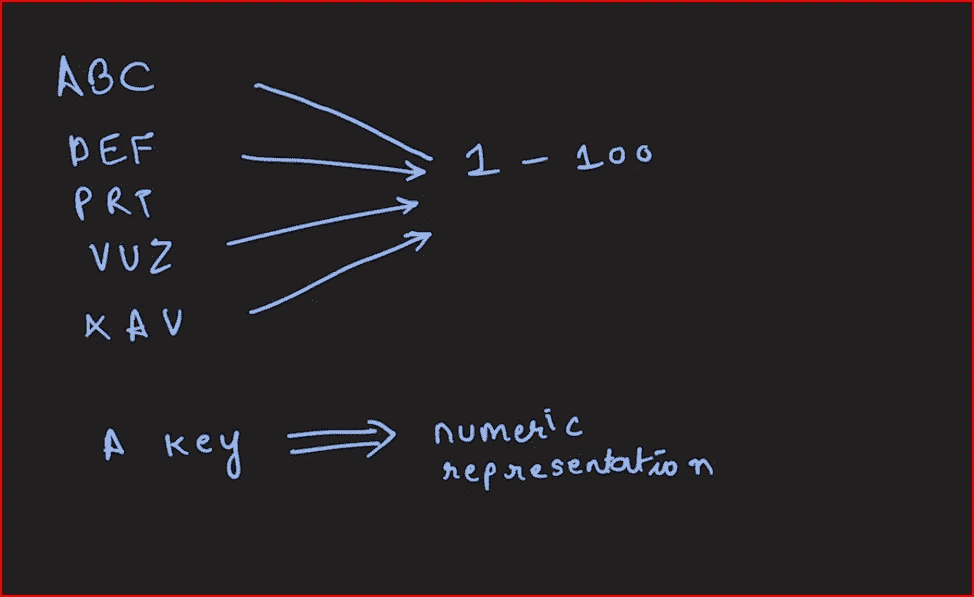 ABC
DEF
PRT
VUZ
KAV
1 - 100
A key ⟹ numeric
representation